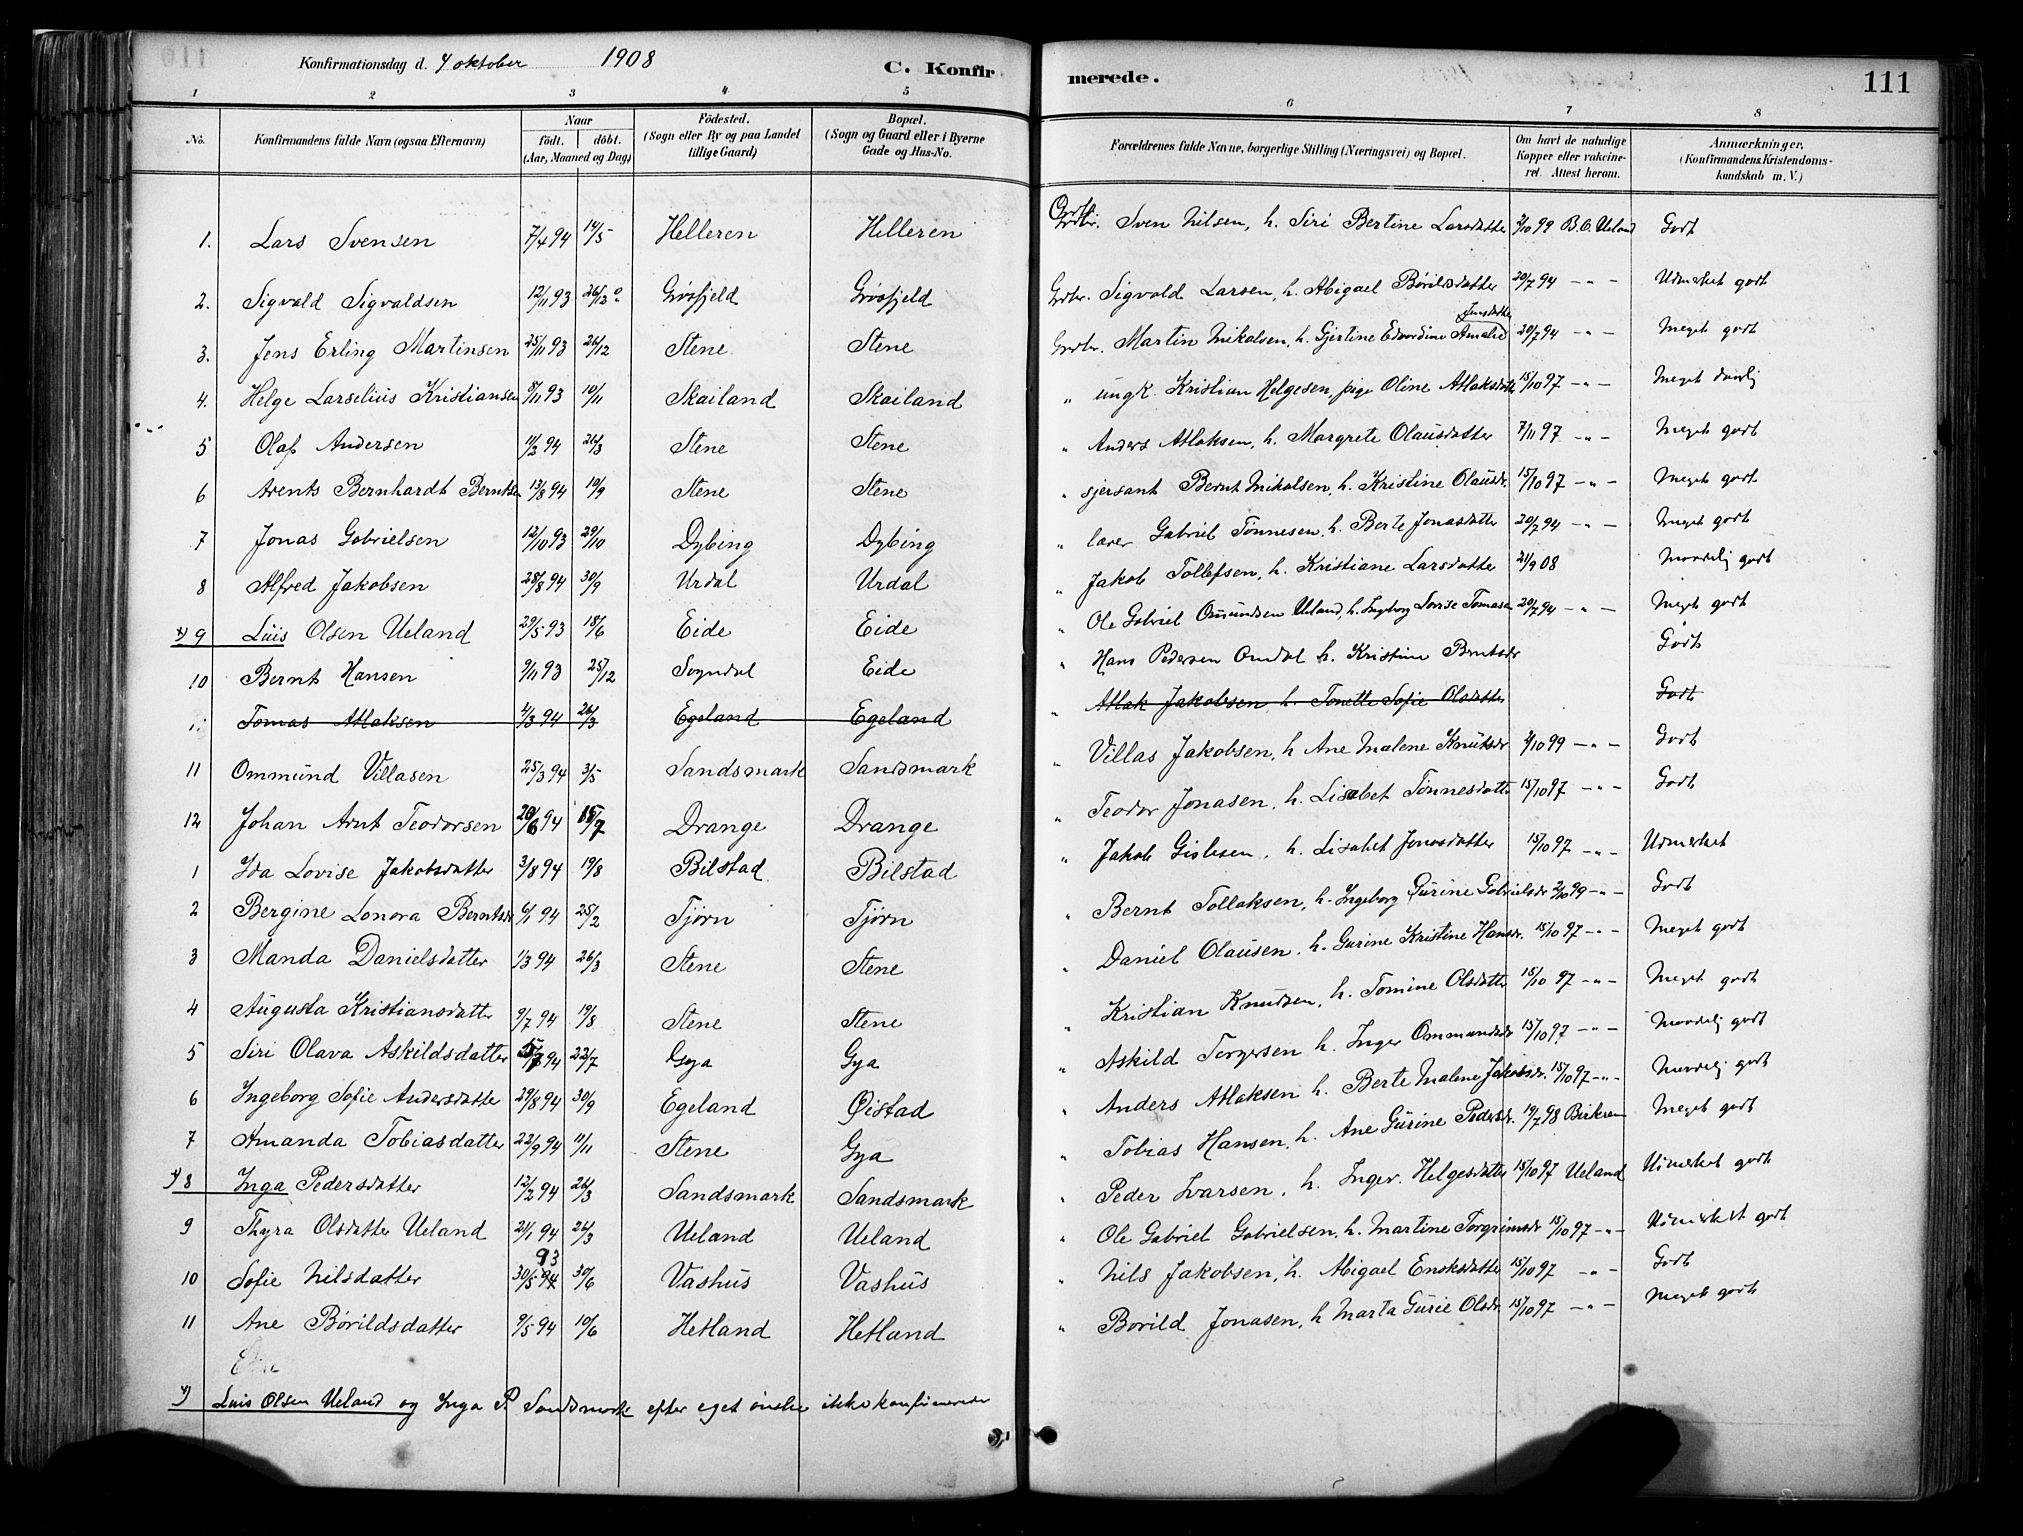 Konfirmationsdag d. 4 oktober 1908 C. Konfirmerede. 111
1 2 3 4 5 6 7 8
No. Konfirmandens fulde Navn (ogsaa Efternavn) Naar födt. döbt. (Aar, Maaned og Dag) Födested. (Sogn eller By og paa Landet tillige Gaard) Bopæl. (Sogn og Gaard eller i Byerne Gade og Hus-No. Forældrenes fulde Navne, borgerlige Stilling (Næringsvei) og Bopæl. Om havt de naturlige Kopper eller vakcineret. Attest herom. Anmærkninger. (Konfirmandens Kristendomskundskab m. V.)
1. Lars Svensen 7/4 94 14/5 Helleren Helleren Grdbr. Sven Nilsen, h. Siri Bertine Larsdatter 2/10 99 B.O. Ueland Godt
2. Sigvald Sigvaldsen 12/11 93 26/12 Grösfjeld Grösfjeld Grdbr. Sigvald Larsen, h. Abigael Börildsdatter 20/7 94 -"- Udmerket godt
3. Jens Erling Martinsen 25/11 93 26/12 Stene Stene Grdbr. Martin Mikalsen, h. Gjertine Edvardine Amalie Jensdatter 20/7 94 "- Meget godt
4. Helge Larselius Kristiansen 8/11 93 10/11 Skailand Skailand " ungk. Kristian Helgesen, pige Oline Atlaksdatter 15/10 97 -"- Meget daarlig
5 Olaf Andersen 11/2 94 26/3 Stene Stene " Anders Atlaksen, h. Margrete Olausdatter 7/11 97 -"- Meget godt
6 Arents Bernhardt Berntsen 13/8 94 10/9 Stene Stene " sjersant Bernt Mikalsen, h. Kristine Olausdr. 15/10 97 -"- Meget godt
7 Jonas Gabrielsen 12/10 93 29/10 Dybing Dybing " lærer Gabriel Tönnesen, h. Berte Jonasdatter 20/7 94 -"- Meget godt
8 Alfred Jakobsen 28/8 94 30/9 Urdal Urdal " Jakob Tollefsen, h. Kristiane Larsdatter 21/9 08 Maadelig godt
*) 9 Luis Olsen Ueland 29/5 93 18/6 Eide Eide " Ole Gabriel Omundsen Ueland, h. Ingeborg Lovise Tomasen 20/7 94 -"- Meget godt
10 Bernt Hansen 9/11 93 25/12 Sogndal Eide " Hans Pedersen Omdal h. Kristine Berntsdr Godt
Tomas Atlaksen 4/3 94 26/3 Egeland Egeland " Atlak Jakobsen h. Tonette Sofie Olsdatter Godt
11 Ommund Villasen 25/3 94 3/5 Sandsmark Sandsmark " Villas Jakobsen, h. Ane Malene Knutsdr 2/10 99 -"- Godt
12 Johan Arnt Teodorsen 20/6 94 15/7 Drange Drange " Teodor Jonasen, h. Lisabet Tönnesdatter 15/10 97 -"- Godt
1 Ida Lovise Jakobsdatter 3/8 94 19/8 Bilstad Bilstad " Jakob Gislesen, h. Lisabet Jonasdatter 15/10 97 -"- Udmerket
2 Bergine Lonora Berntsdr 6/1 94 25/2 Tjørn Tjørn " Bernt Tollaksen, h. Ingeborg Gurine Gabrielsdr 2/10 99 -"- Godt
3 Manda Danielsdatter 1/3 94 26/3 Stene Stene " Daniel Olausen, h. Gurine Kristine Hansdr. 15/10 97 -"- Meget godt
4 Augusta Kristiansdatter 9/7 94 19/8 Stene Stene " Kristian Knudsen, h. Tomine Olsdatter 15/10 97 -"- Meget godt
5 Siri Olava Askildsdatter 5/7 94 22/7 Gya Gya " Askild Torgersen h. Inger Ommundsdr 15/10 97 -"- Maadelig godt
6 Ingeborg Sofie Andersdatter 29/8 94 30/9 Egeland Øistad " Anders Atlaksen h. Berte Malene Jakobsdr. 15/10 97 -"- Maadelig godt
7 Amanda Tobiasdatter 22/9 94 11/11 Stene Gya " Tobias Hansen, h. Ane Gurine Pedersdr. 19/7 98 Birkrem Meget godt
*) 8 Inga Pedersdatter 12/2 94 26/3 Sandsmark Sandsmark " Peder Ivarsen, h. Inger Helgesdatter 15/10 97 Ueland Udmerket godt
9 Thyra Olsdatter Ueland 21/1 94 26/3 Ueland Ueland " Ole Gabriel Gabrielsen, h. Martine Torgrimsdr 15/10 97 -"- Udmerket godt
10 Sofie Nilsdatter 30/5 94 93 30/6 Vashus Vashus " Nils Jakobsen, h. Abigael Enoksdatter 15/10 97 -"- Godt
11 Ane Börildsdatter 9/5 94 10/6 Hetland Hetland " Borild Jonasen, h. Marta Gurie Olsdr. 15/10 97 -"- Meget godt
*) Luis Olsen Ueland og Inga P. Sandsmark efter eget ønske ikke konfirmerede